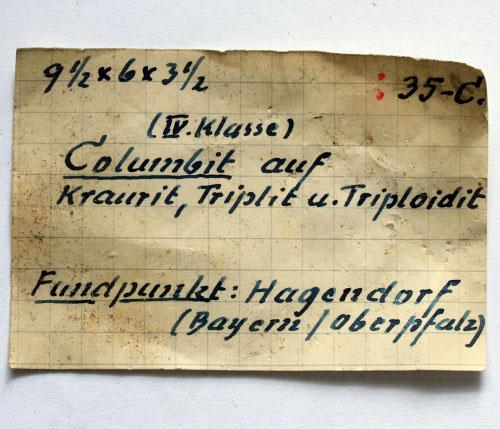 9 1/2 x 6 x 3 1/2
: 35-C.
(IV. Klasse)
Columbit auf
Kraurit, Triplit u. Triploidit
Fundpunkt: Hagendorf
(Bayern/Oberpfalz)